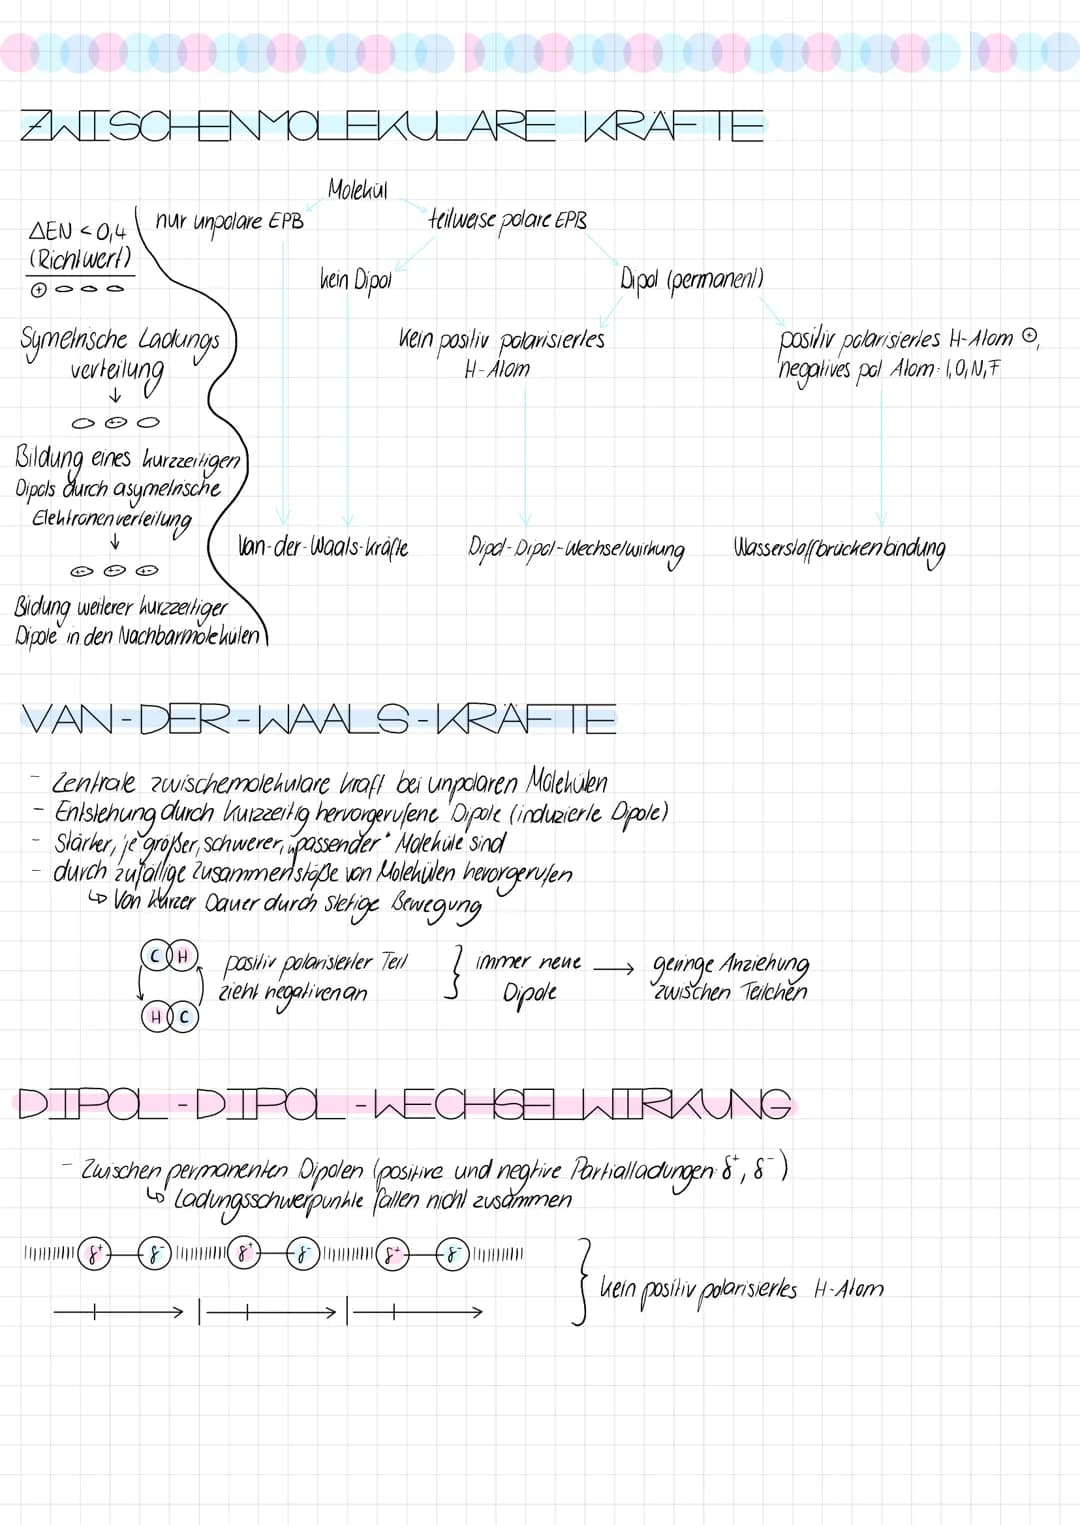 ZWISCHENMOLEKULARE KRÄFTE
Molekül
nur unpolare EPB
teilweise polare EPB
ΔEN < 0,4
(Richtwert)
kein Dipol
Dipol (permanent)
Symetrische Ladungs
verteilung
kein positiv polarisiertes
H-Atom
positiv polarisiertes H-Atom ⊕,
negatives pol Atom: l, O, N, F
Bildung eines kurzzeitigen
Dipols durch asymetrische
Elektronenverteilung
Van-der-Waals-kräfte
Dipol-Dipol-Wechselwirkung
Wasserstoffbrückenbindung
Bildung weiterer kurzzeitiger
Dipole in den Nachbarmolekülen
VAN-DER-WAALS-KRÄFTE
- Zentrale zwischemolekulare kraft bei unpolaren Molekülen
- Entstehung durch kurzzeitig hervorgerufene Dipole (induzierte Dipole)
- Stärker, je größer, schwerer, „passender" Moleküle sind
- durch zufällige Zusammenstöße von Molekülen hervorgerufen
↳ Von kurzer Dauer durch stetige Bewegung
C H
positiv polarisierter Teil
zieht negativen an
immer neue
Dipole
→ geringe Anziehung
zwischen Teilchen
H C
DIPOL-DIPOL-WECHSELWIRKUNG
- Zwischen permanenten Dipolen (positive und negtive Partialladungen: δ⁺, δ⁻)
↳ Ladungsschwerpunkte fallen nicht zusammen
δ⁺ δ⁻ δ⁺ δ⁻ δ⁺ δ⁻
kein positiv polarisiertes H-Atom